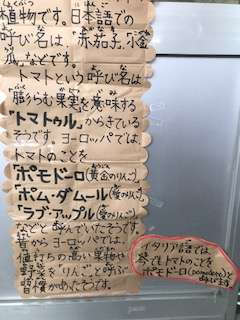 植物です。日本語での
呼び名は、"赤茄子"、
などです。
トマトという呼び名は
膨らむ果実を意味する
「トマトゥル」からきている
そうです。ヨーロッパでは、
トマトのことを
「ポモドーロ(黄金のりんご)
「ポム・ダムール(愛のりんご)
「ラブ・アップル(愛のりんご)
などと呼んでいたそうです。
昔からヨーロッパでは、
値打ちの高い果物や
野菜を「りんご」と呼ぶ
習慣があったそうです。
イタリア語では、
今でもトマトのことを
ポモドーロ(pomodoro)と
呼びます